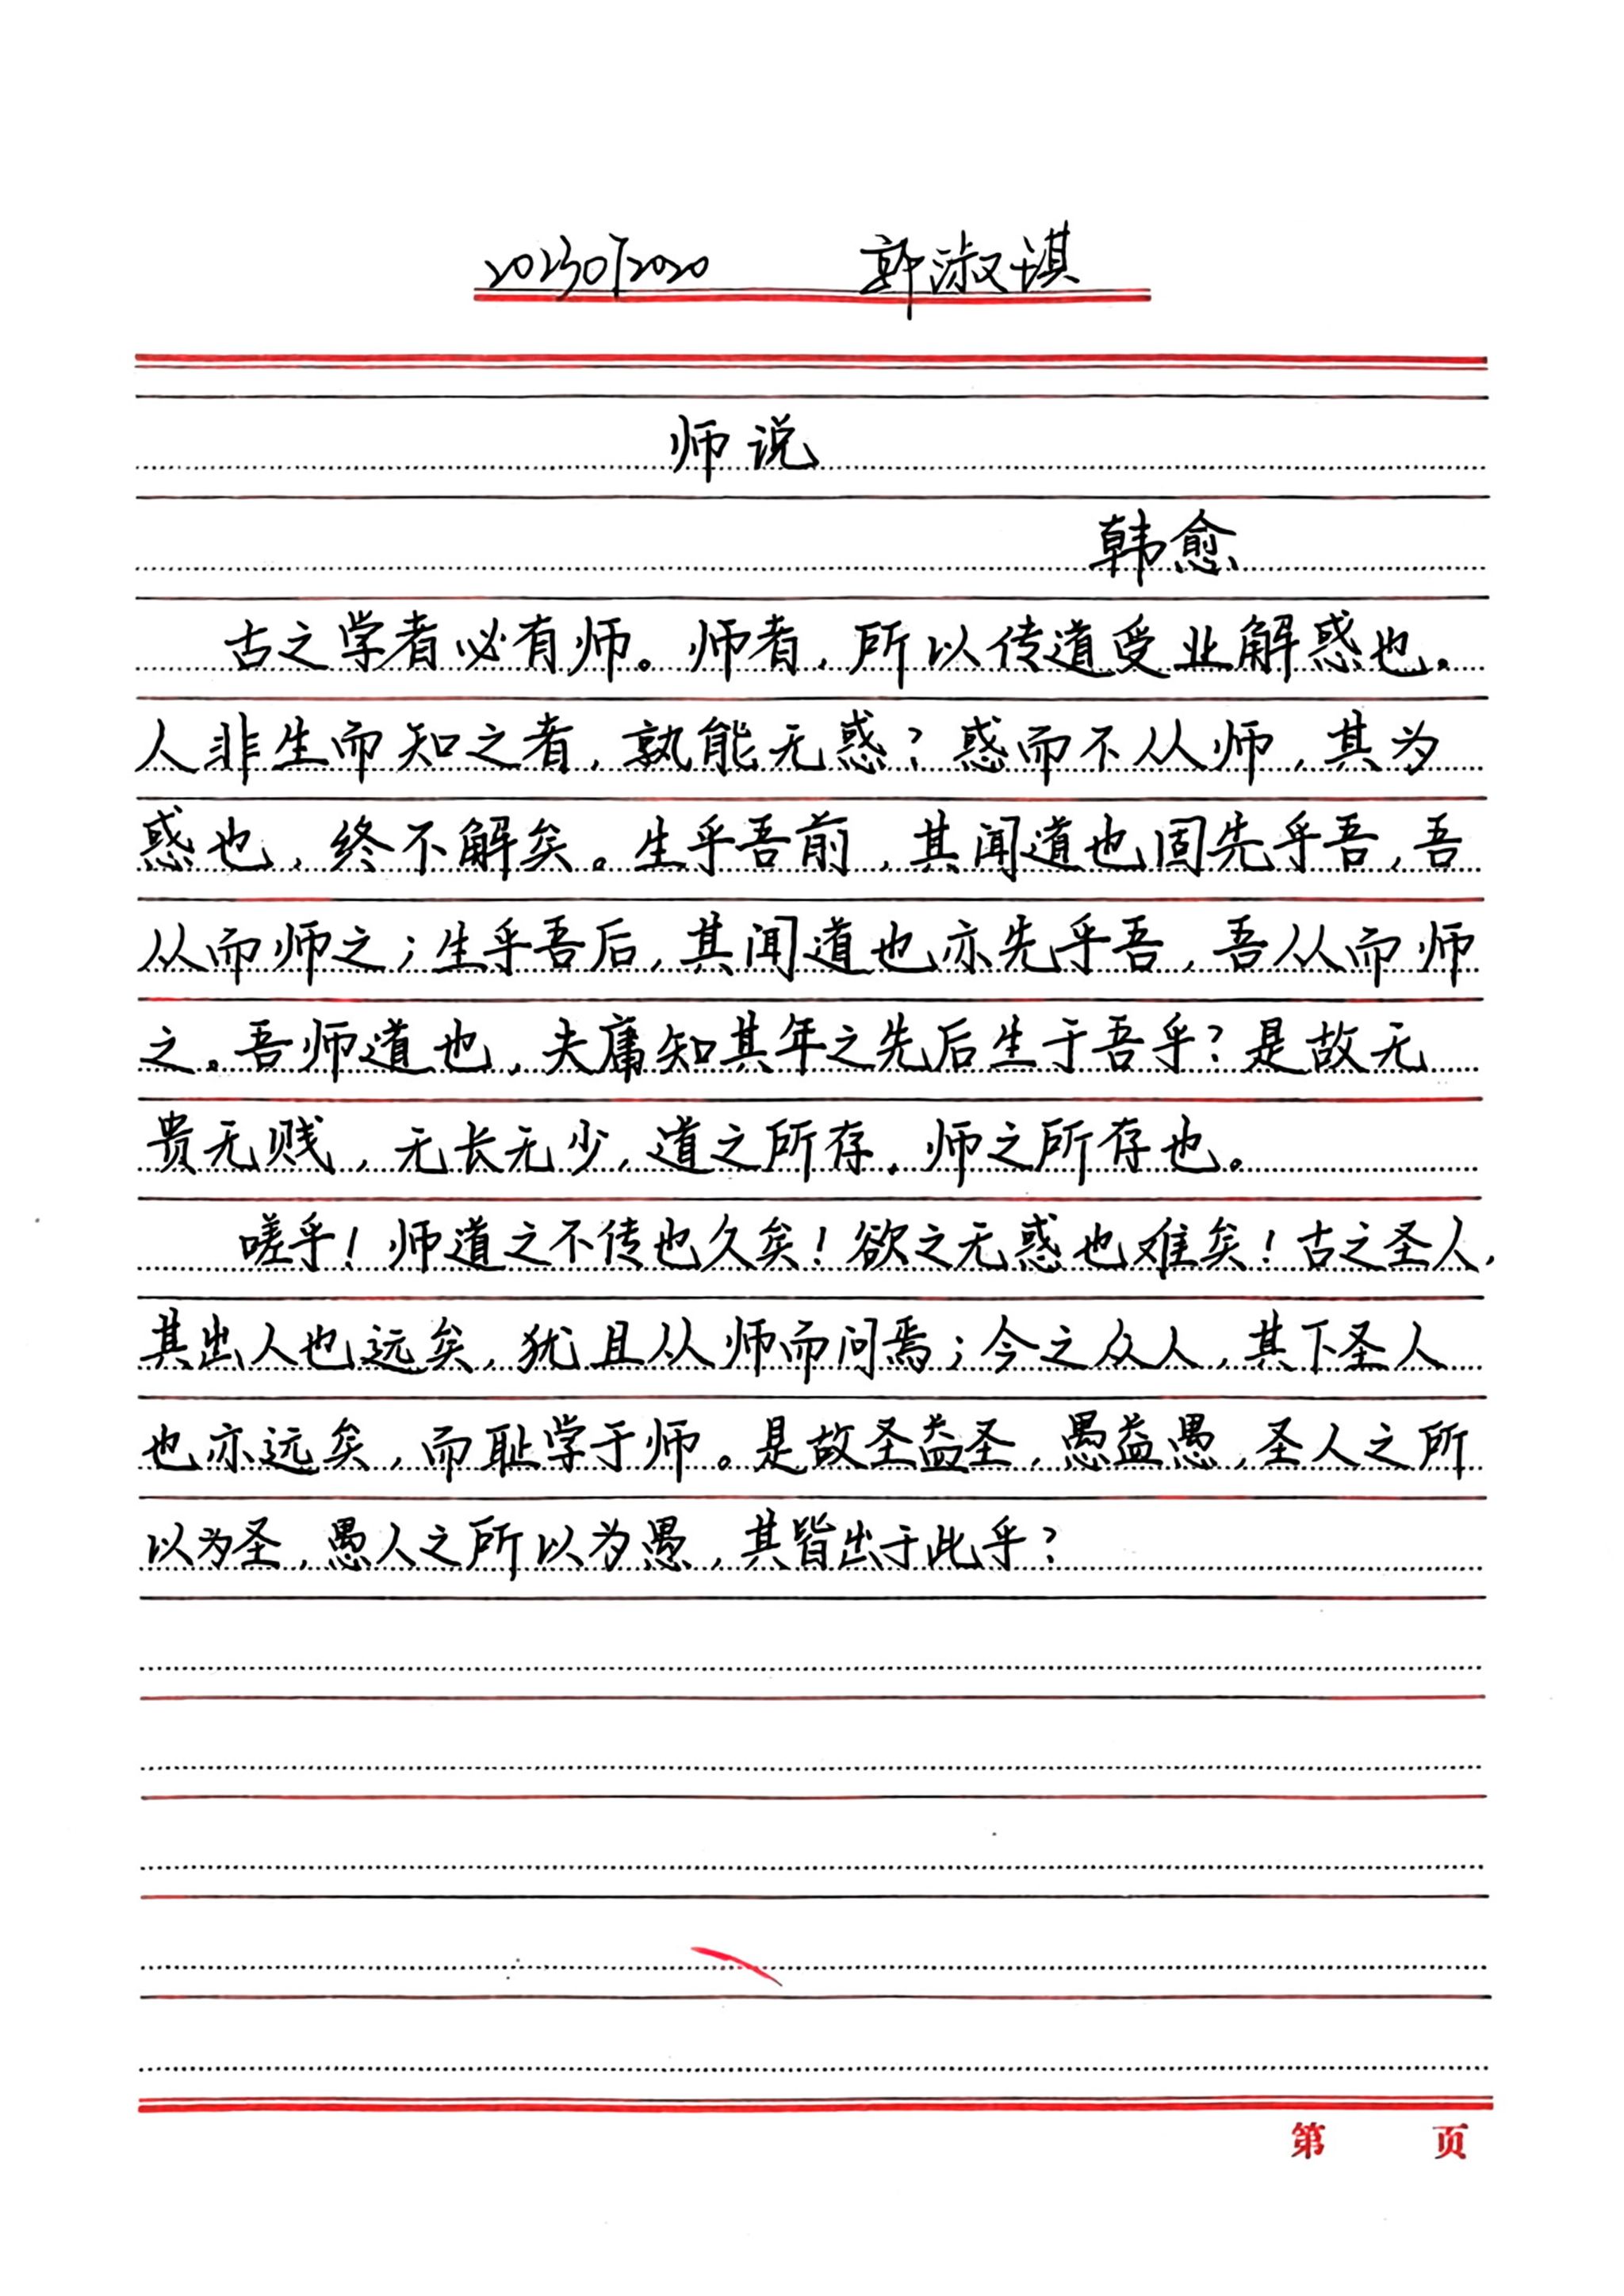 20230712020 郭淑琪
师说
韩愈
古之学者必有师。师者,所以传道受业解惑也。
人非生而知之者,孰能无惑?惑而不从师,其为
惑也,终不解矣。生乎吾前,其闻道也固先乎吾,吾
从而师之;生乎吾后,其闻道也亦先乎吾,吾从而师
之。吾师道也,夫庸知其年之先后生于吾乎?是故无
贵无贱,无长无少,道之所存,师之所存也。
嗟乎!师道之不传也久矣!欲之无惑也难矣!古之圣人,
其出人也远矣,犹且从师而问焉;今之众人,其下圣人
也亦远矣,而耻学于师。是故圣益圣,愚益愚,圣人之所
以为圣,愚人之所以为愚,其皆出于此乎?
第 页